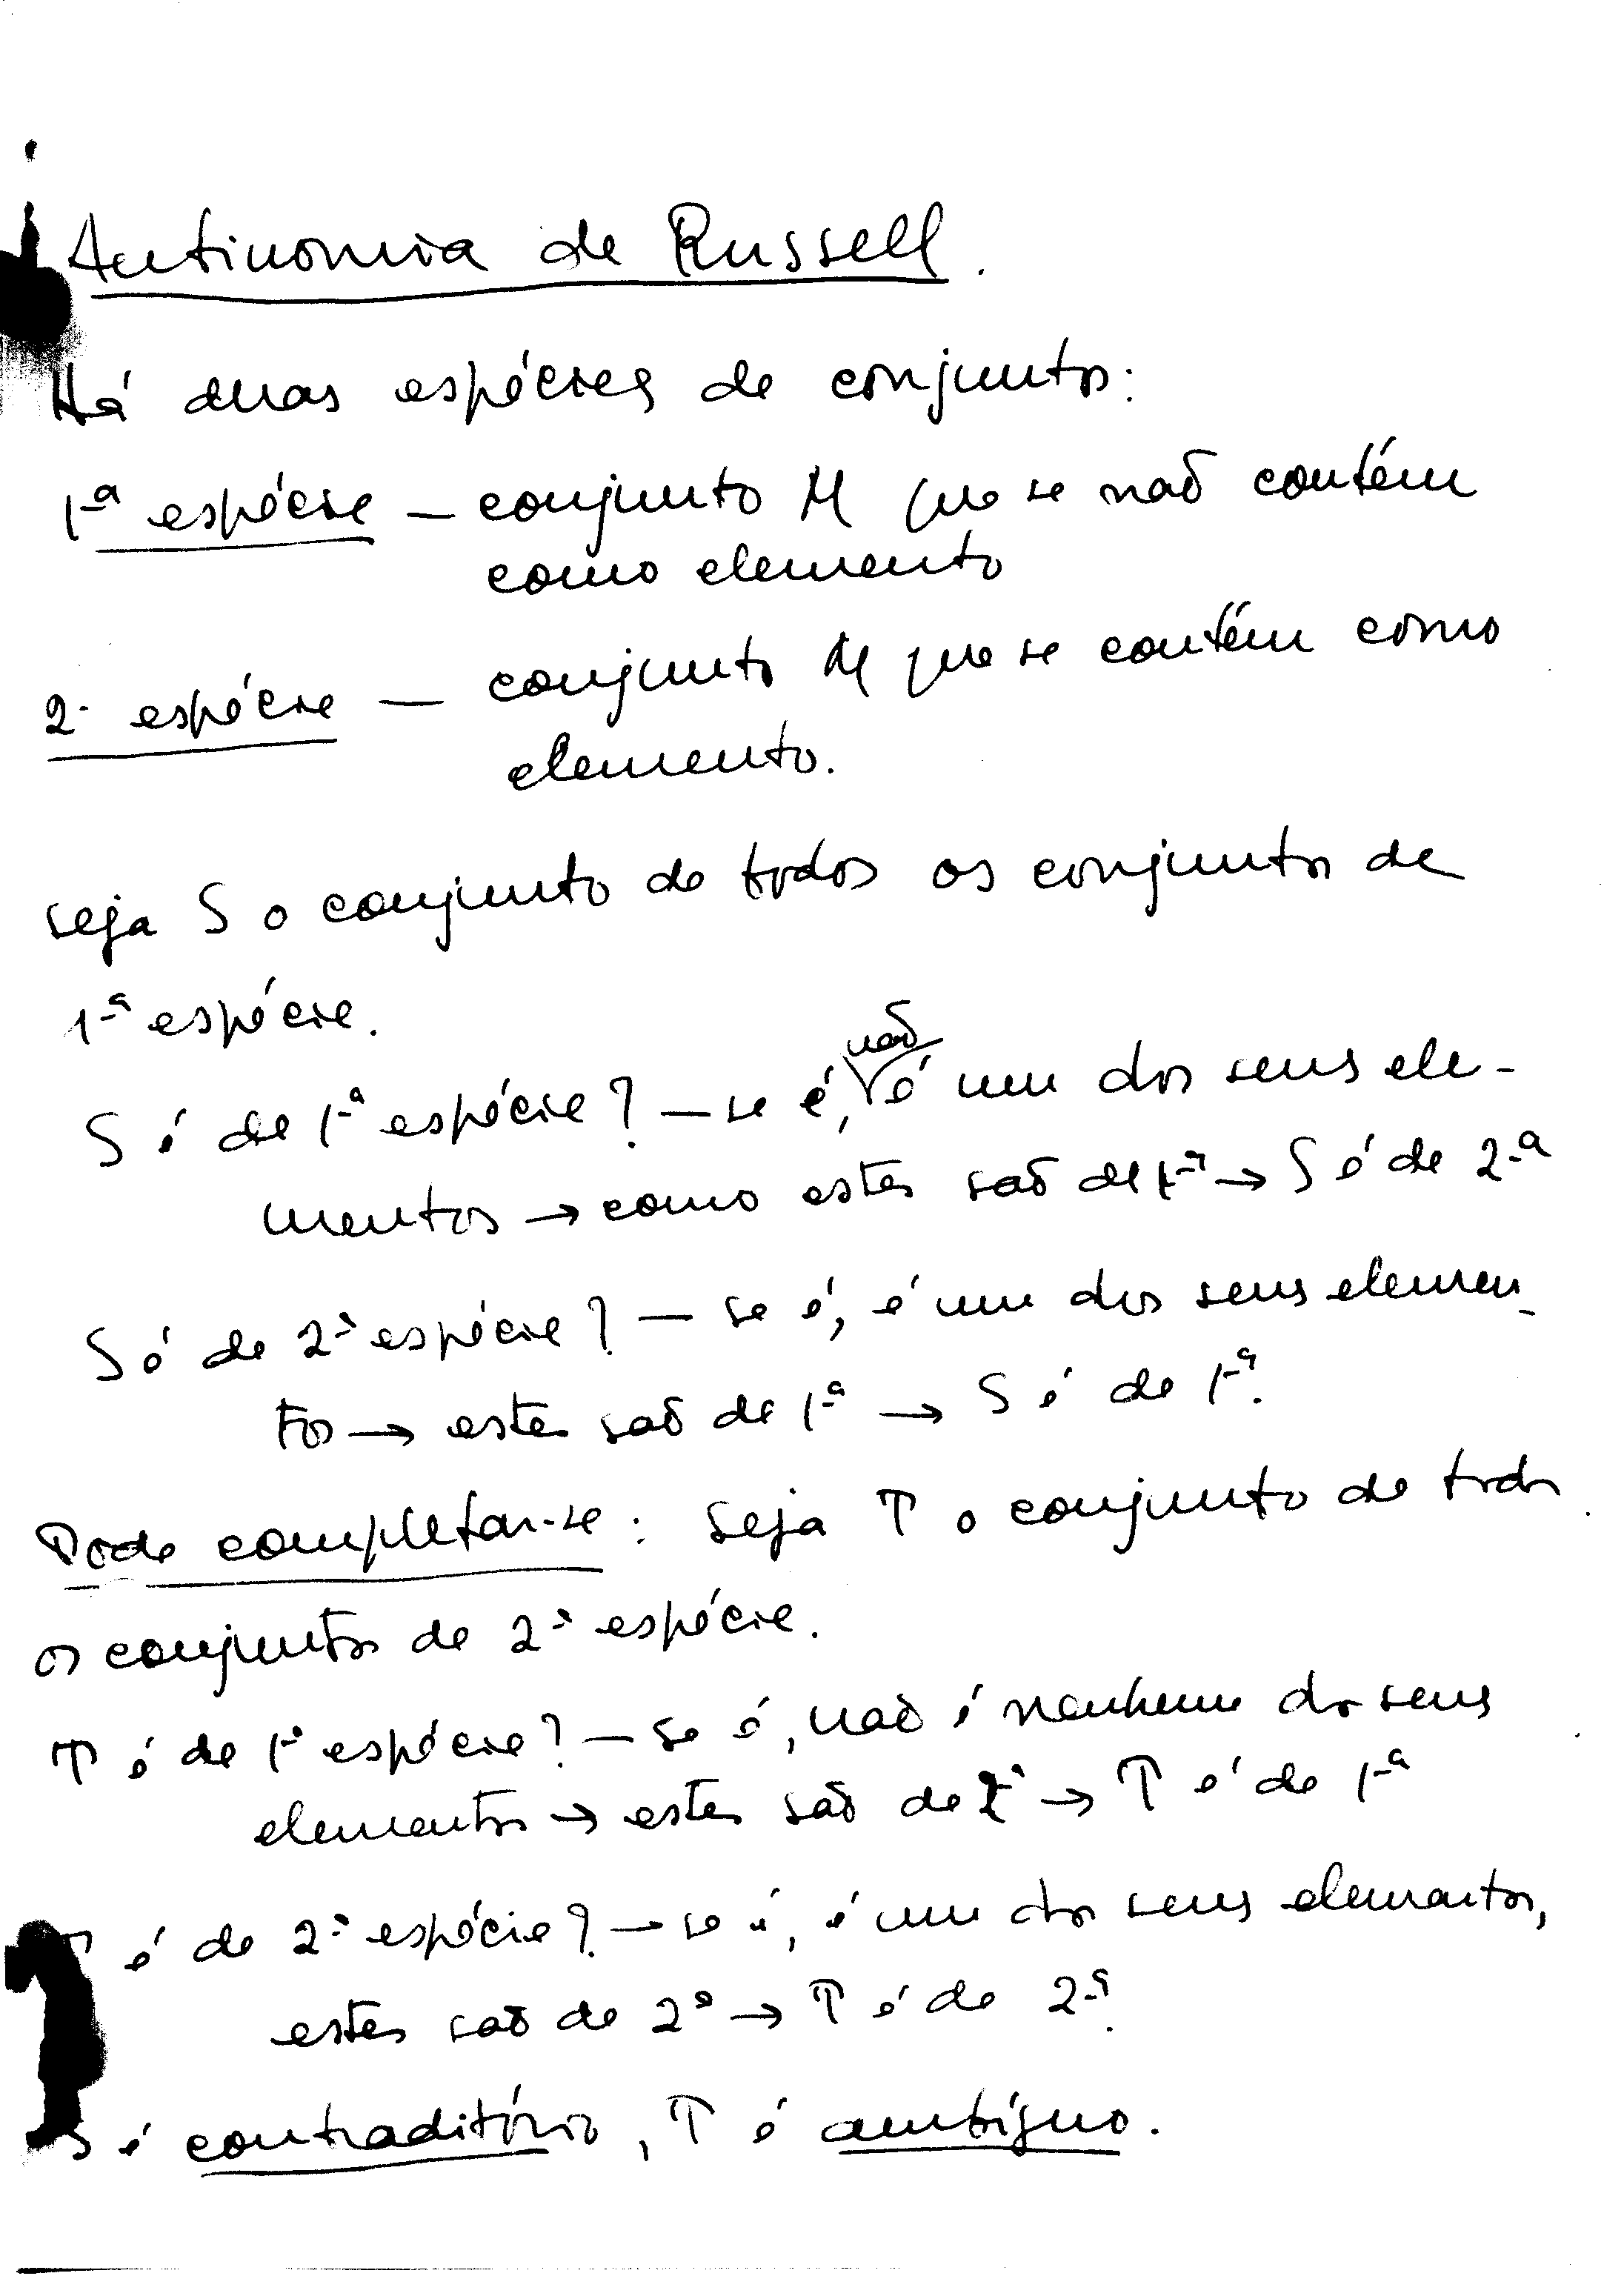 Antinomia de Russell.
Há duas espécies de conjuntos:
1ª espécie — conjunto M que se não contém
como elemento
2ª espécie — conjunto M que se contém como
elemento.
seja S o conjunto de todos os conjuntos de
1ª espécie.
S é de 1ª espécie? — se é, não é um dos seus ele-
mentos → como estes são de 1ª → S é de 2ª
S é de 2ª espécie? — se é, é um dos seus elemen-
tos → estes são de 1ª → S é de 1ª.
Pode completar-se: seja T o conjunto de todos
os conjuntos de 2ª espécie.
T é de 1ª espécie? — se é, não é nenhum dos seus
elementos → estes são de 2ª → T é de 1ª
T é de 2ª espécie? — se é, é um dos seus elementos,
estes são de 2ª → T é de 2ª.
S é contraditório, T é ambíguo.